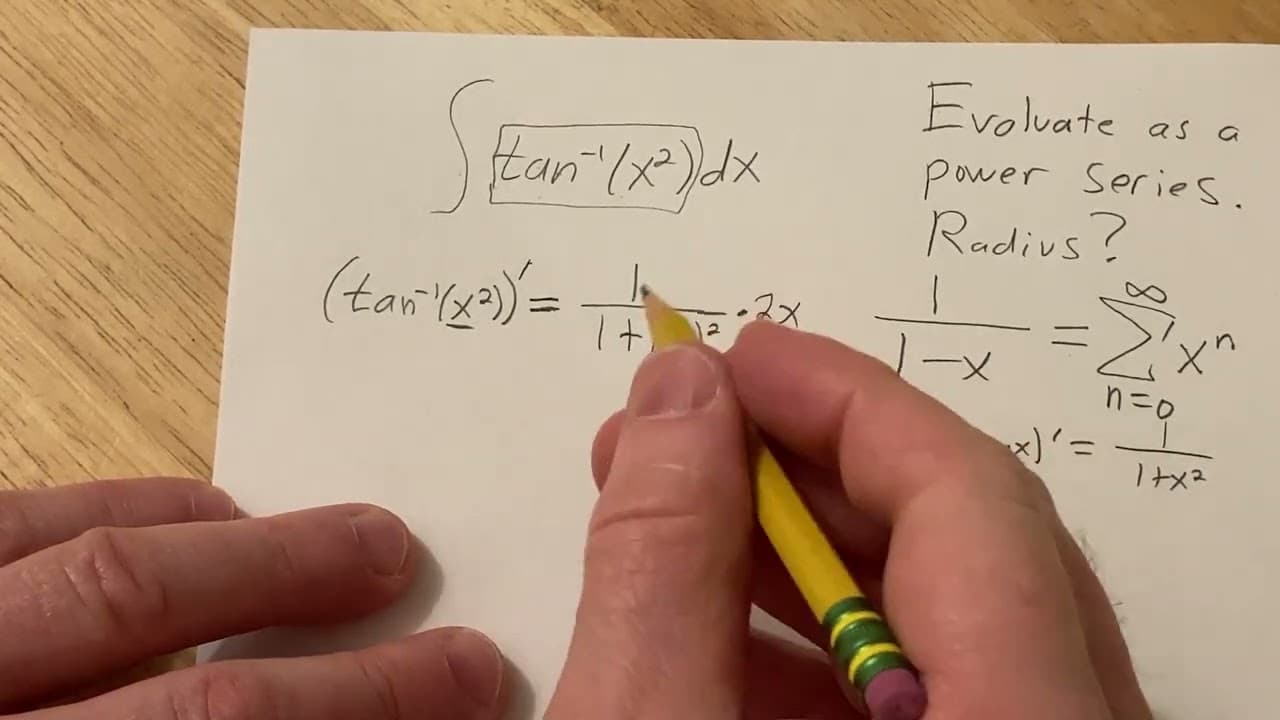 ∫ tan⁻¹(x²) dx
Evaluate as a
power series.
Radius?
(tan⁻¹(x²))' = 1 / 1+ )² · 2x
1 / 1-x = ∑ n=0 ∞ xⁿ
x)' = 1 / 1+x²